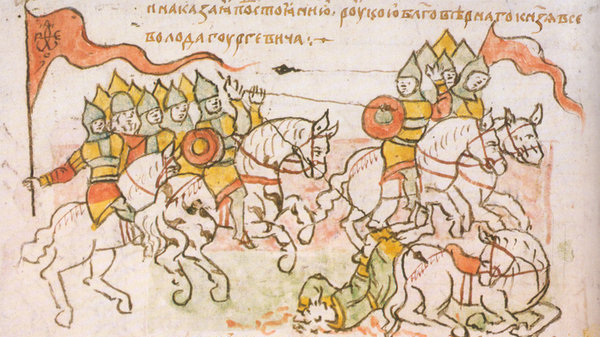 и наказани по стоѧнию, роукою блговѣрнаго кнѧзѧ все
волода гоургевича :~